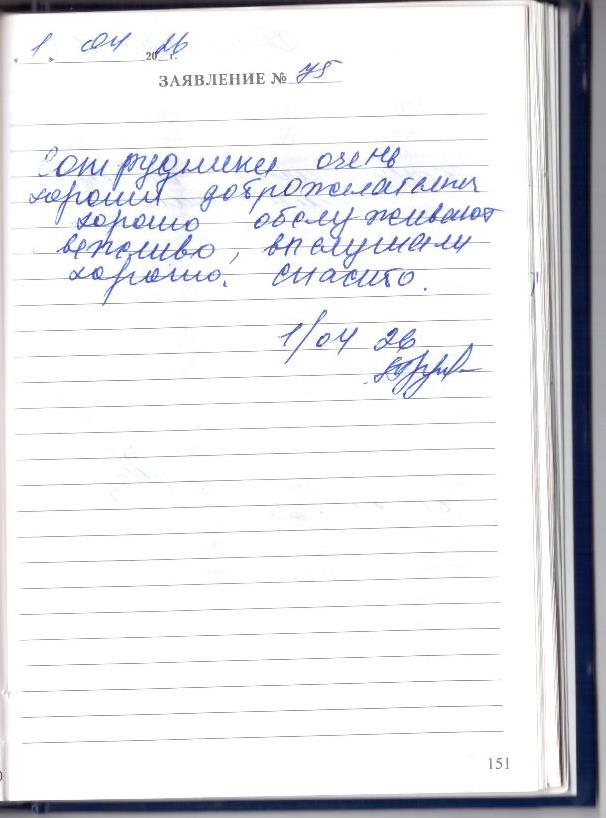 « 1 » 04 2026 г.
ЗАЯВЛЕНИЕ № 75
Сотрудники очень
хорошие доброжелательны
хорошо обслуживают
вежливо, выслушали
хорошо. спасибо.
1/04 26
151